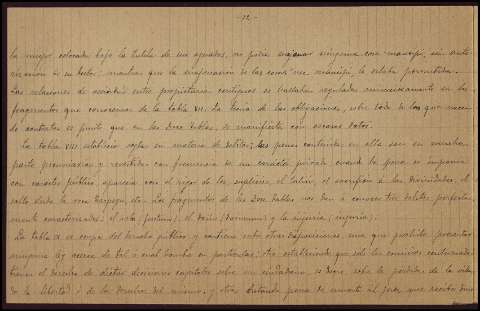 -12-
la mujer colocada bajo la tutela de sus agnados, no podía enajenar ninguna cosa mancipi, sin auto-
rización de su tutor; mientras que la enajenación de las cosas nec mancipi, le estaba permitida.
Las relaciones de vecindad entre propietarios contiguos se hallaban reguladas minuciosamente en los
fragmentos que conocemos de la tabla VII. La teoría de las obligaciones, sobre todo de las que nacen
de contratos es punto que en las Doce tablas, se manifiesta con escasos datos.
La tabla VIII establecía reglas en materia de delitos; las penas contenidas en ella son en mucha
parte pecuniarias y revestidas con frecuencia de un carácter privado cuando la pena se imponía
con carácter público, aparecía con el rigor de los suplicios, el talión, el sacrificio a las divinidades, el
salto desde la roca Tarpeya, etc. Los fragmentos de las Doce Tablas nos dan a conocer tres delitos perfecta-
mente caracterizados: el robo (furtum), el daño (damnum) y la injuria (injuria).
La tabla IX se ocupa del derecho público y contiene entre otras disposiciones, una que prohíbe presentar
ninguna ley acerca de tal o cual hombre en particular; otra estableciendo que sólo los comicios centuriados
tienen el derecho de dictar decisiones capitales sobre un ciudadano, es decir, sobre la pérdida de la vida
de la libertad o de los derechos del mismo, y otra dictando pena de muerte al juez que reciba dine